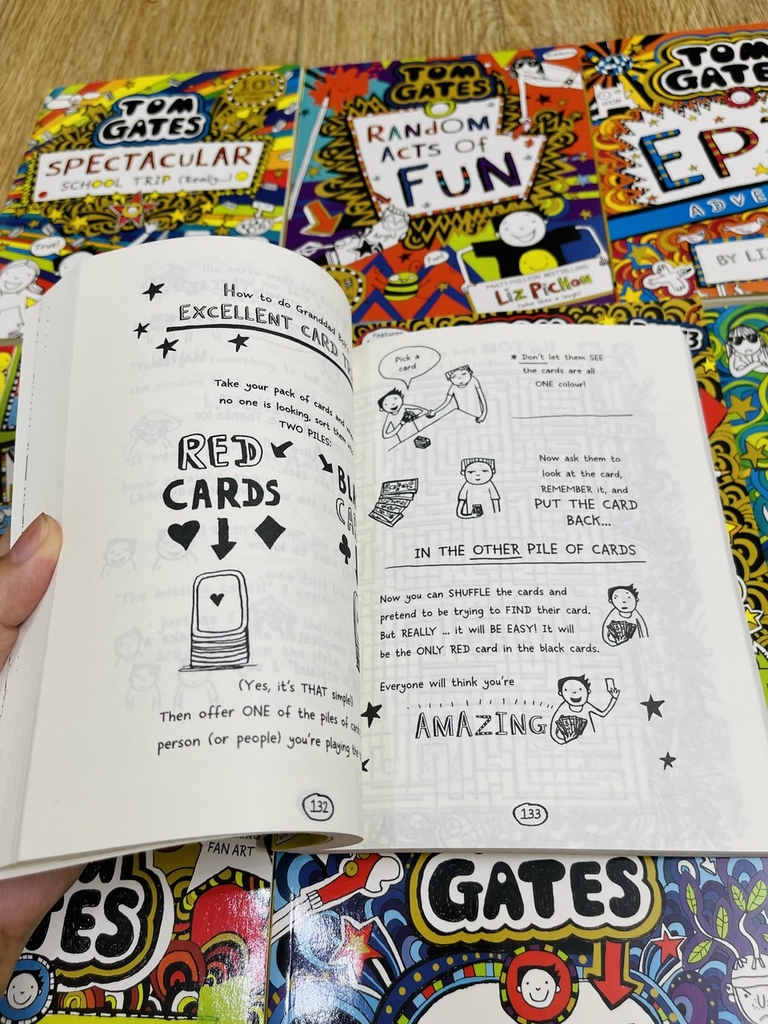 TOM
GATES
SPECTACULAR
SCHOOL TRIP (Really...)
True!
TOM
GATES
RANDOM
ACTS OF
FUN
Fun!
MULTI-MILLION BESTSELLING
Liz Pichon
TOM
GATE
EP
ADVE
BY LI
How to do Granddad
EXCELLENT CARD T
Take your pack of cards and
no one is looking, sort them
TWO PILES:
RED
CARDS
BL
CA
(Yes, it's THAT simple!)
Then offer ONE of the piles of
person (or people) you're playing
132
Pick a
card
* Don't let them SEE
the cards are all
ONE colour!
Now ask them to
look at the card,
REMEMBER it, and
PUT THE CARD
BACK...
IN THE OTHER PILE OF CARDS
Now you can SHUFFLE the cards and
pretend to be trying to FIND their card.
But REALLY ... it will BE EASY! It will
be the ONLY RED card in the black cards.
Everyone will think you're
AMAZING
133
FAN ART
TES
GATES